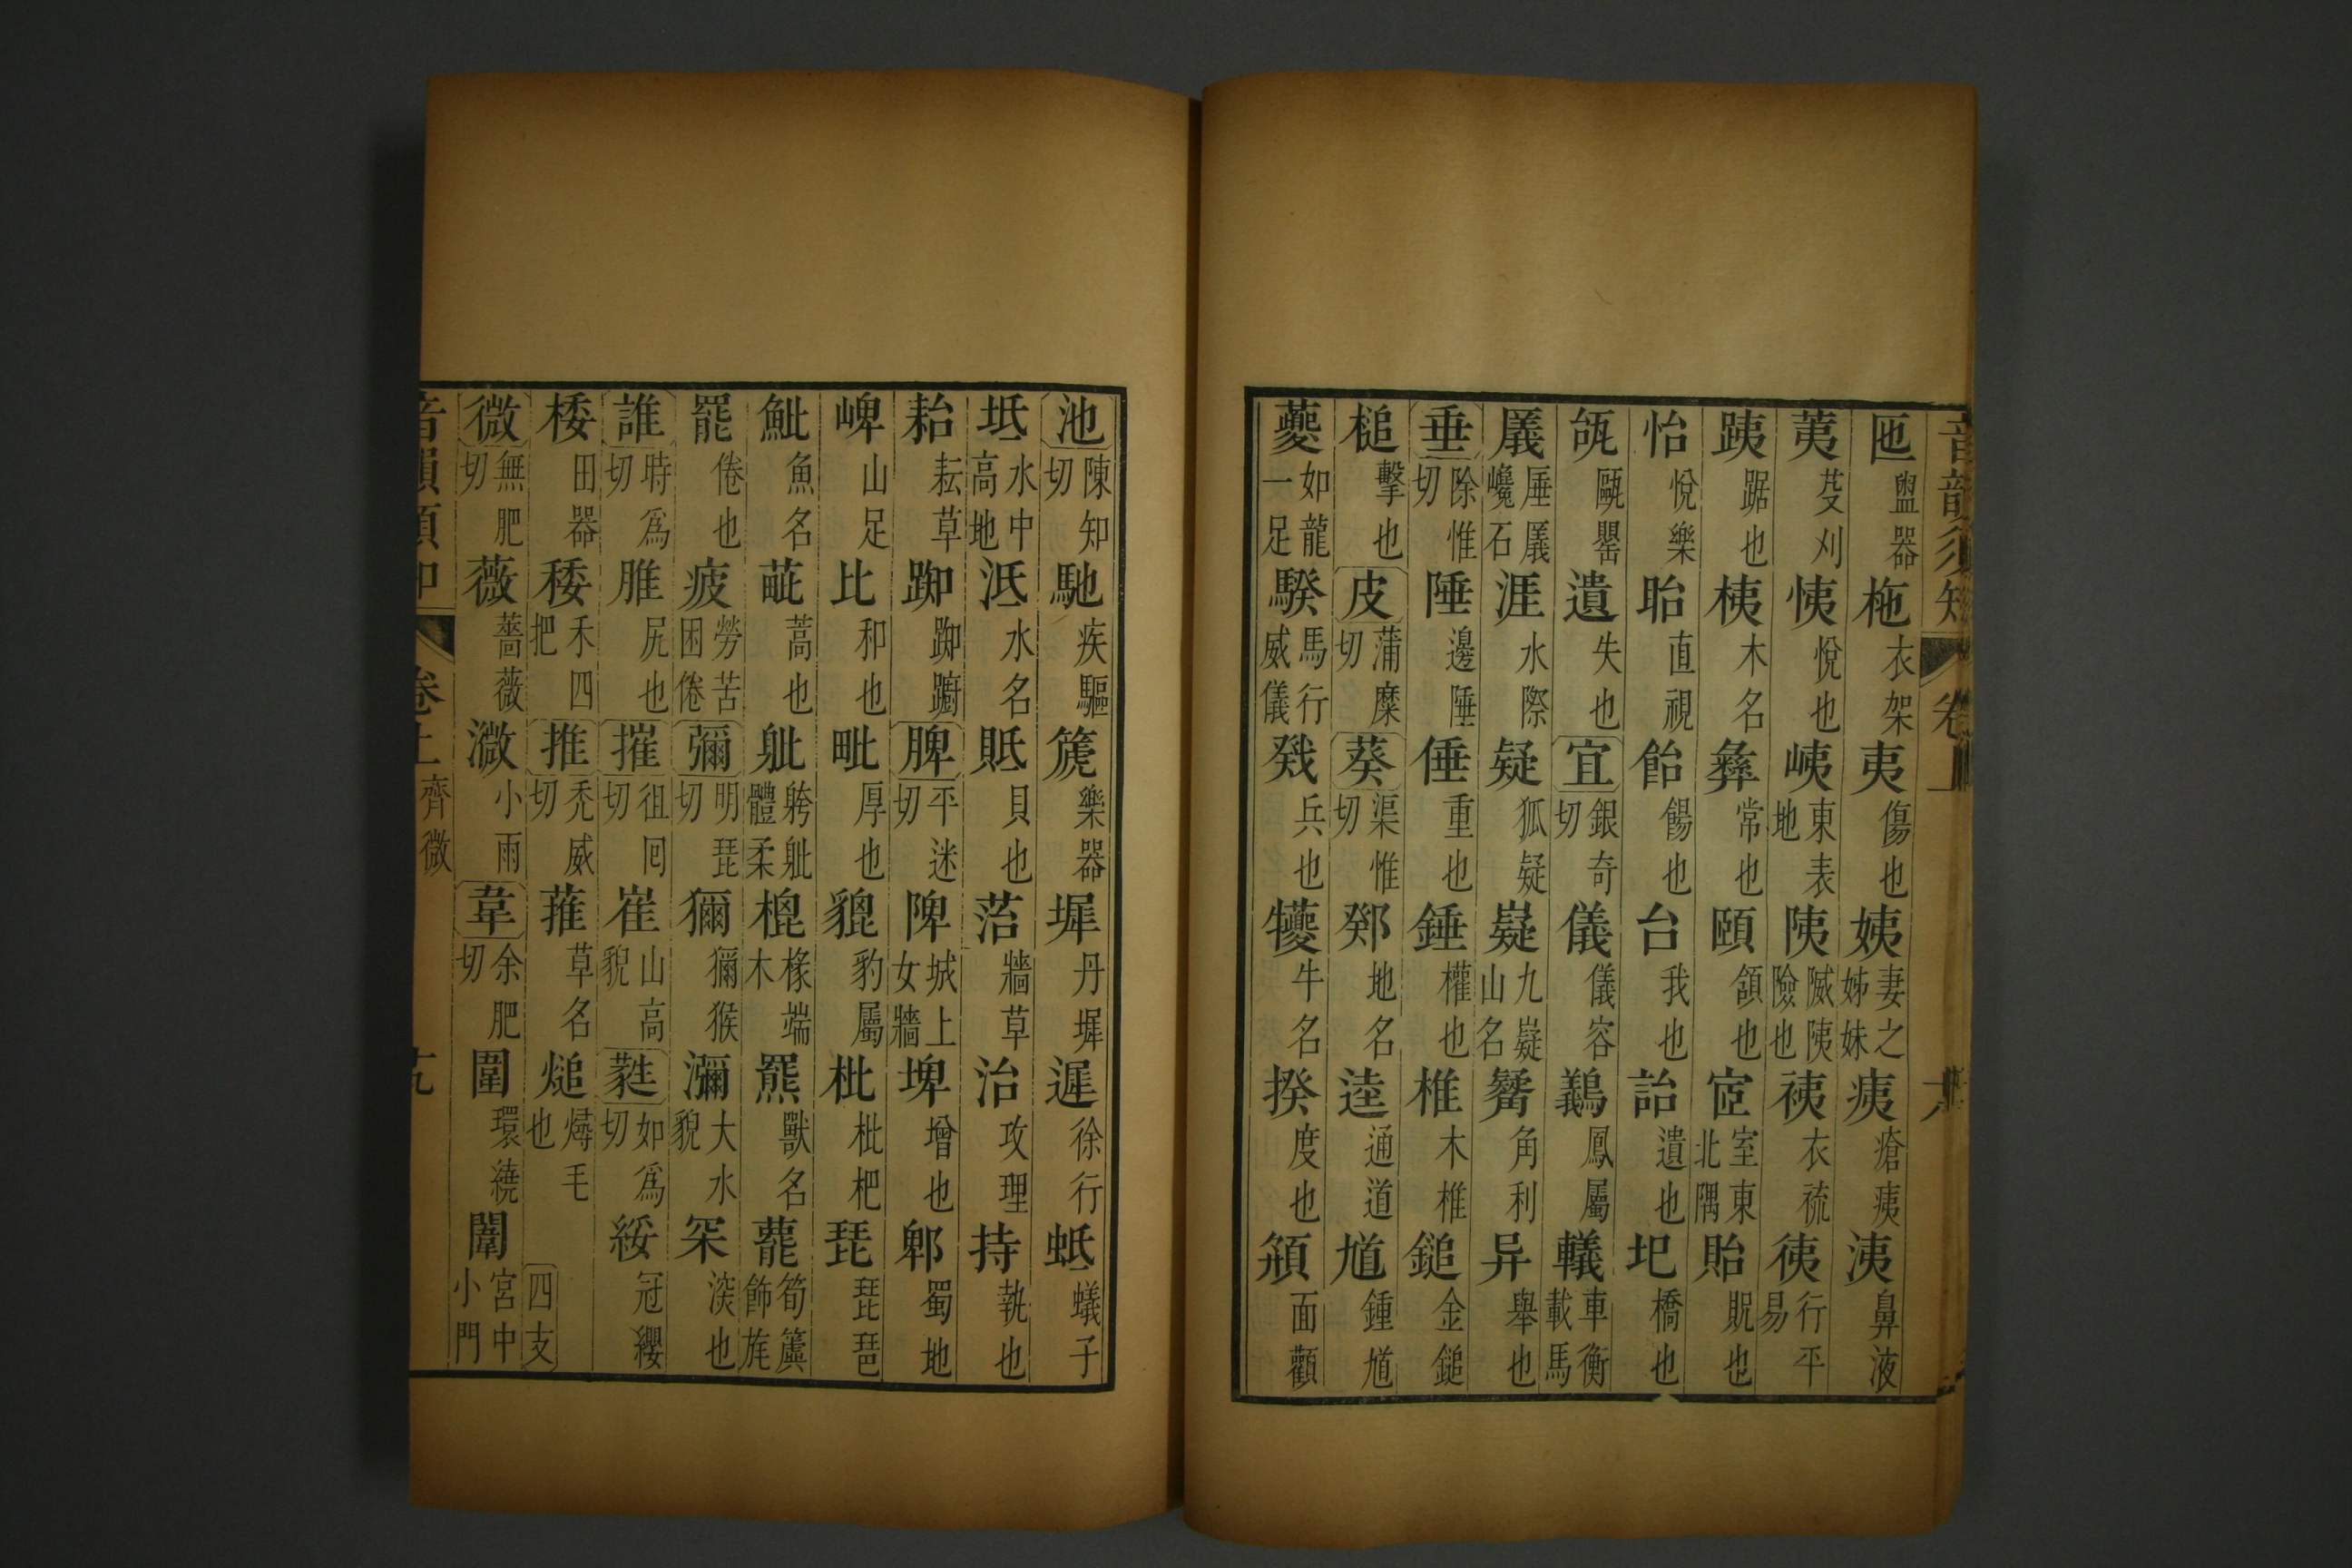 音韻須知 卷上
匜盥器 椸衣架 夷傷也 姨妻之姊妹 痍瘡痍 洟鼻液
荑芟刈 恞悅也 峓東表地 陦險也 衣 行平易
跠踞也 桋木名 彝常也 頤頷也 宧室東北隅 貽貺也
怡悅樂 眙直視 飴餳也 台我也 詒遺也 圯橋也
瓵甌罌 遺失也 宜銀奇切 儀儀容 鸃鳳屬 轙車衡載馬
㕒㕒巉石 涯水際 疑狐疑 嶷九嶷山名 觺角利 异舉也
垂除惟切 陲邊陲 倕重也 錘權也 椎木椎 鎚金鎚
槌擊也 皮蒲糜切 葵渠惟切 鄈地名 逵通道 馗鍾馗
夔如龍一足 騤馬行威儀 戣兵也 犪牛名 揆度也 頯面顴
池陳知切 馳疾驅 篪樂器 墀丹墀 遲徐行 蚳蟻子
坻水中高地 泜水名 貾貝也 菭牆草 治攻理 持執也
耛耘草 踟踟躕 脾平迷切 陴城上女牆 埤增也 郫蜀地
崥山足 比和也 毗厚也 貔豹屬 枇枇杷 琵琵琶
魮魚名 蓖蒿也 躰躰體柔 槐椽端木 羆獸名 蘢筍簴飾旄
罷倦也 疲勞苦困倦 彌明琵切 獮獮猴 瀰大水貌 罙深也
誰時爲切 脽尻也 摧徂回切 崔山高貌 蕤如爲切 綏冠纓
桵田器 稜禾四把 推禿威切 蓷草名 㷟燖毛也 四支
微無肥切 薇薔薇 溦小雨 韋余肥切 圍環繞 闈宮中小門
音韻須知 卷上 齊微 十九